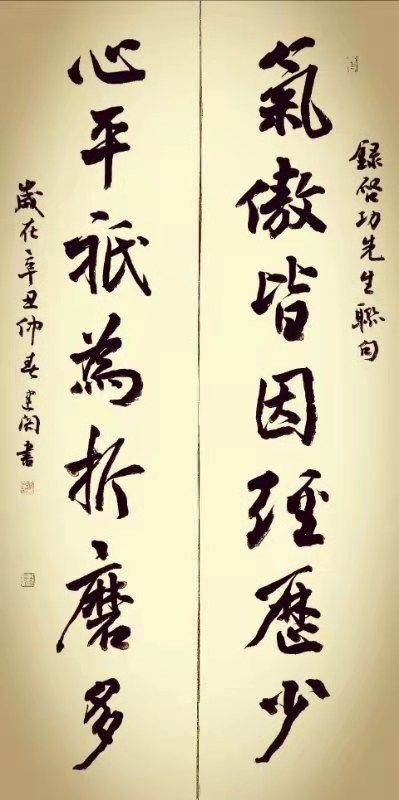 錄啓功先生聯句
氣傲皆因經歷少
心平祇為折磨多
歲在辛丑仲春建闵書